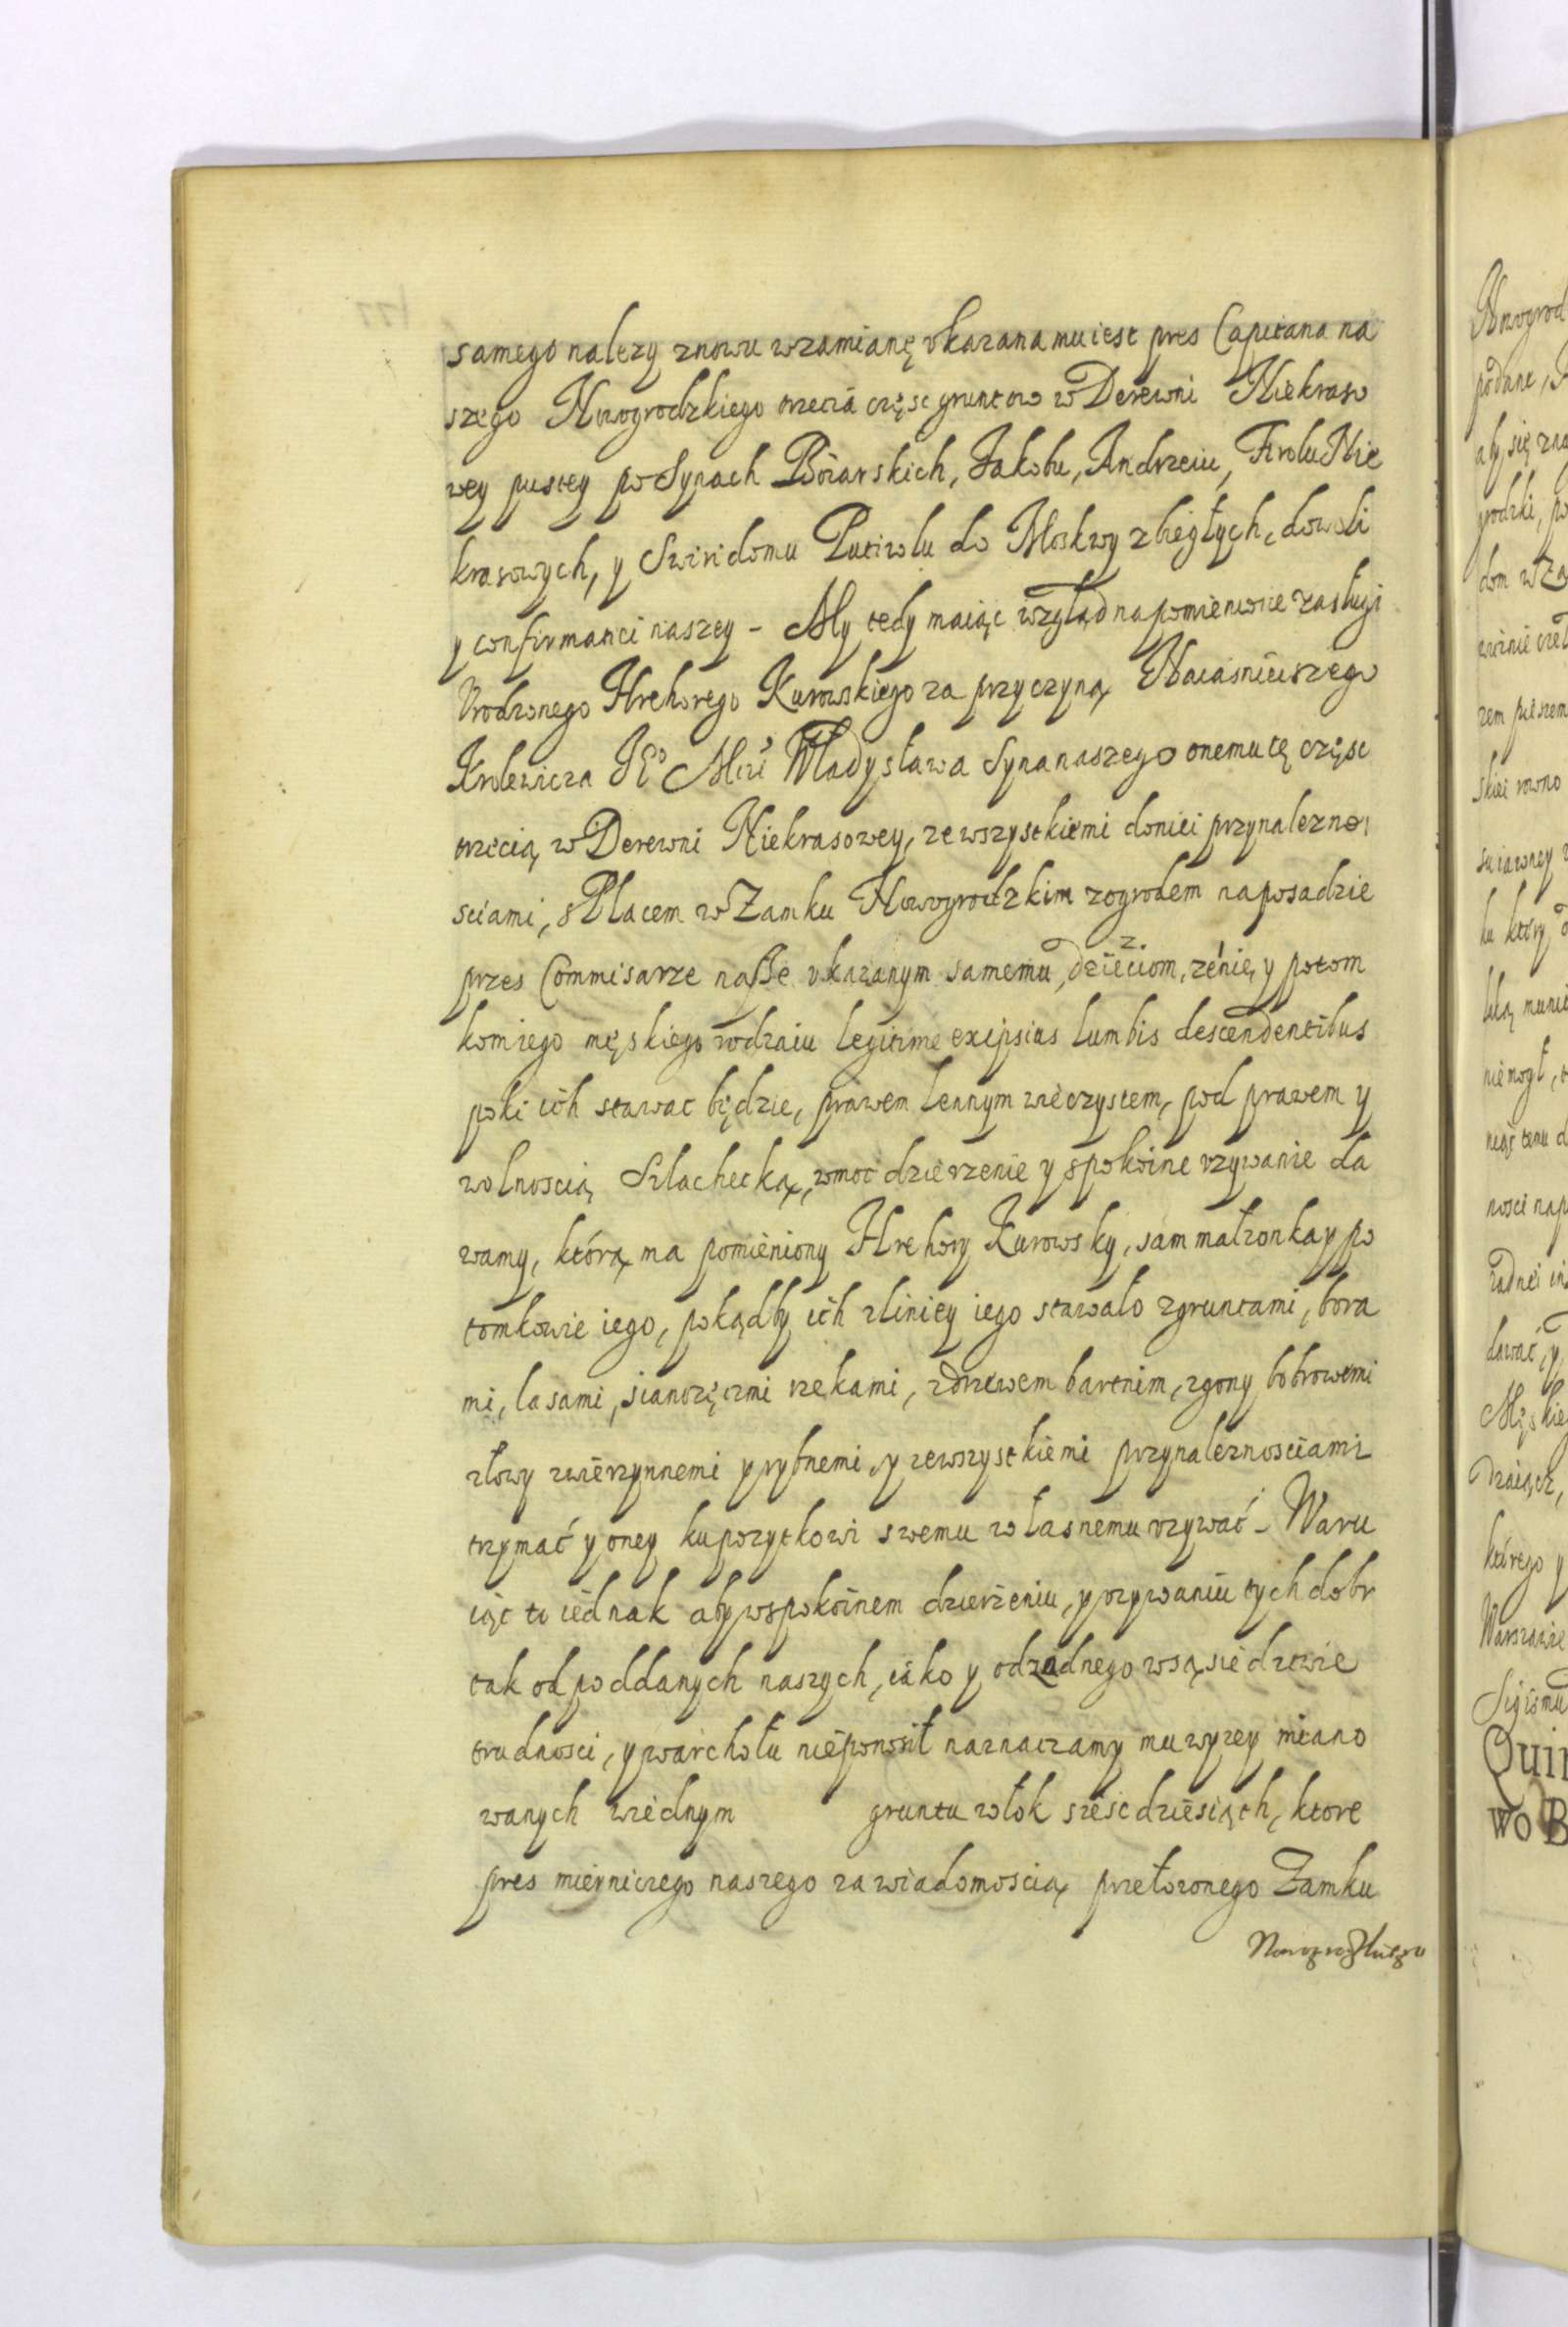 samego należy znowu wzamianę vkazana mu iest pres Capitana na
szego Nowogrodzkiego trzecia częsc gruntow w Derewni Niekraso
wey pustey po Synach Boiarskich, Jakobu, Andrzeiu, Firolu Nie
krasowych, y Swiridomu Putiwlu do Moskwy zbiegłych, dowoli
y confirmanci naszey - My tedy maiąc wzgląd na pomienione zasługi
Vrodzonego Hrehorego Kurowskiego za przyczyną Naiasnieiszego
Krolewicza JEo Mci Władysława Syna naszego onemu tę częsc
trzecią w Derewni Niekrasowey, ze wszystkiemi doniei przynalezno
sciami, s Placem w Zamku Nowogrodzkim zogrodem na posadzie
przes Commisarze nasze vkazanym samemu, dzieciom, żenie, y potom
kom iego męskiego rodzaiu legitime ex ipsius lumbis descendentibus
poki ich stawac będzie, prawem lennym wieczystem, pod prawem y
wolnoscią Szlachecką, w moc dzierzenie y spokoine vzywanie da
wamy, którą ma pomieniony Hrehory Kurowsky, sam małzonka y po
tomkowie iego, pokądby ich z liniey iego stawało z gruntami, bora
mi, lasami, sianozęczmi rzekami, z drzewem bartnim, z gony bobrowemi
złowy zwierzynnemi y rybnemi, y ze wszystkiemi przynaleznosciami
trzymać y oney ku pozytkowi swemu własnemu vzywać - Waru
iąc to iednak aby w spokoinem dzierżeniu, y vzywaniu tych dobr
tak od poddanych naszych, iako y od zadnego w sąsiedztwie
trudnosci, y warchołu nieponosił naznaczamy mu wyzey miano
wanych wiednym gruntu włok sześcdziesiąth, ktore
pres mierniczego naszego za wiadomoscią przełozonego Zamku
Nowogrodzkiego